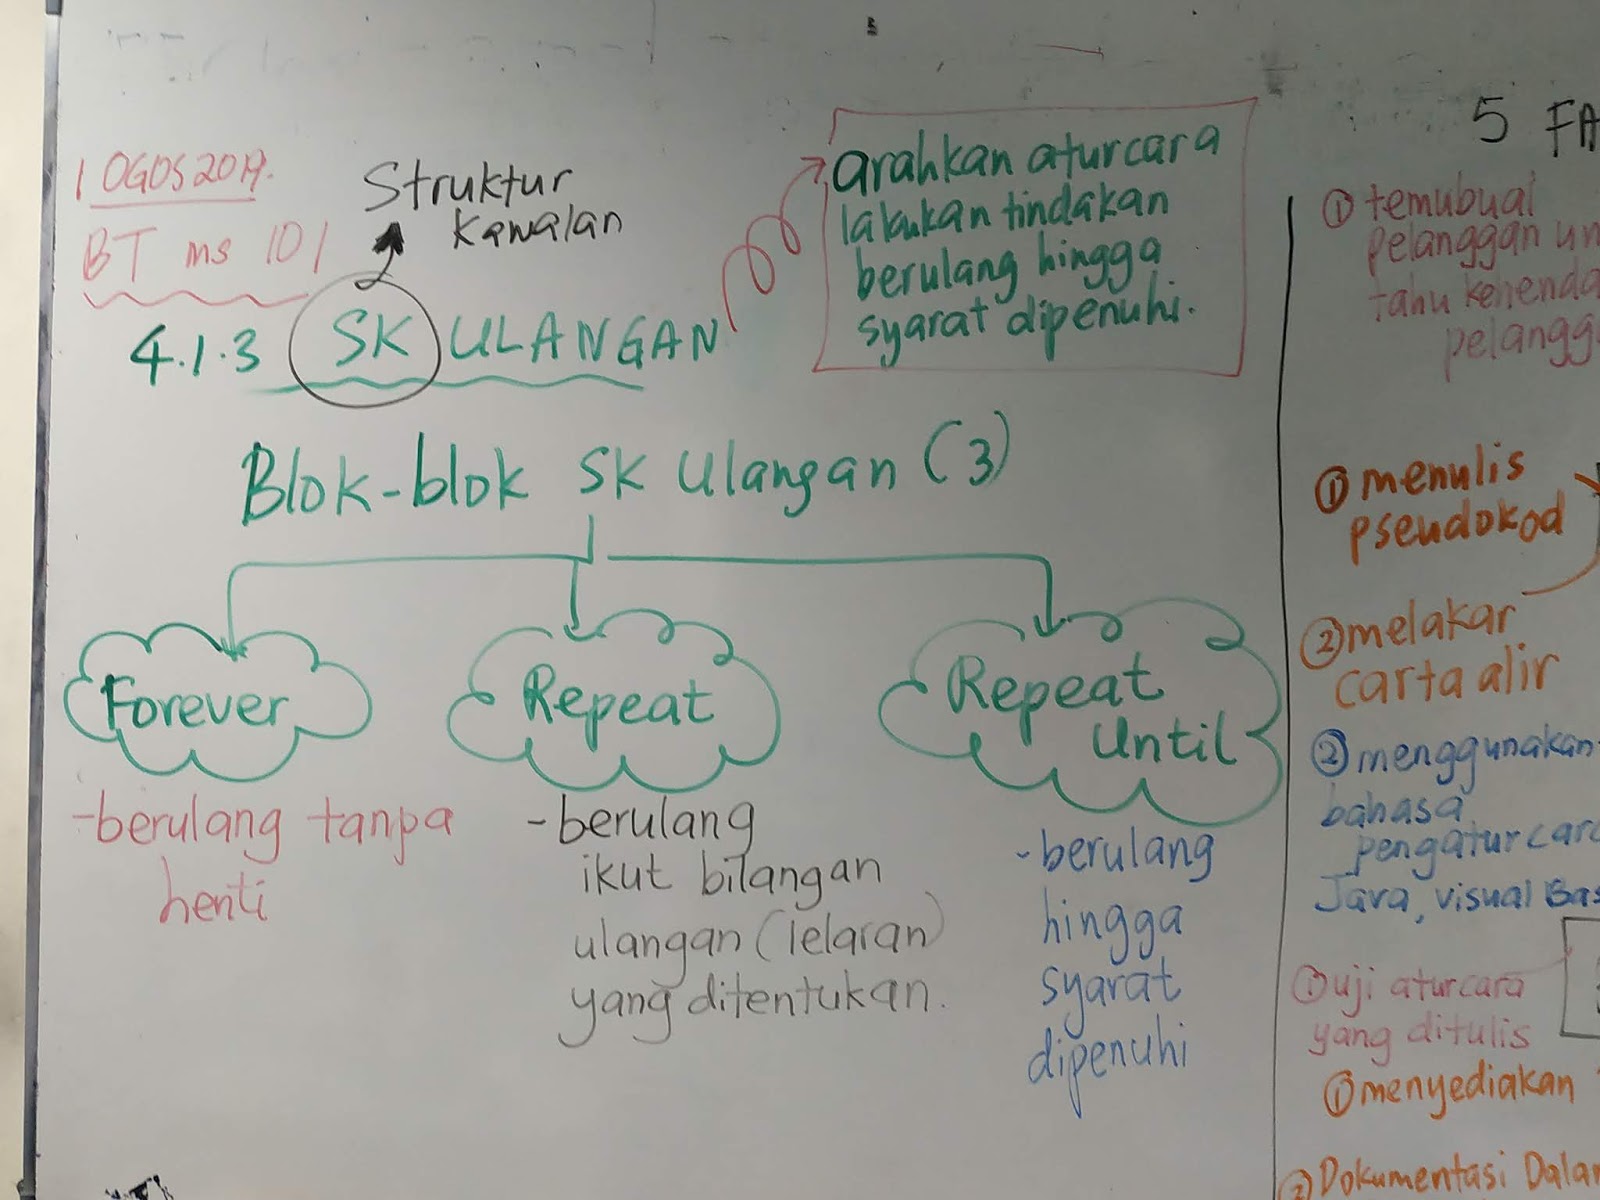 1 OGOS 2019.
BT ms 101
Struktur
Kawalan
4.1.3 SK ULANGAN
arahkan aturcara
lakukan tindakan
berulang hingga
syarat dipenuhi.
Blok-blok SK Ulangan (3)
Forever
-berulang tanpa
henti
Repeat
-berulang
ikut bilangan
ulangan (lelaran)
yang ditentukan.
Repeat
Until
-berulang
hingga
syarat
dipenuhi
5 FA
① temubual
pelanggan un
tahu kehenda
pelangg
① menulis
pseudokod
② melakar
carta alir
② menggunakan
bahasa
pengaturcara
Java, visual Bas
① uji aturcara
yang ditulis
① menyediakan
② Dokumentasi Dalam